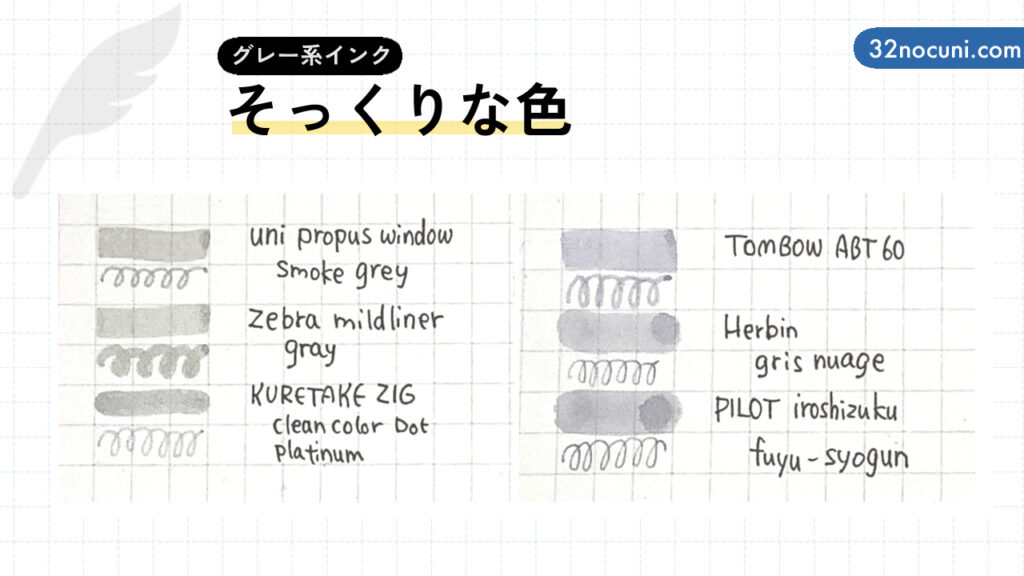 グレー系インク
そっくりな色
32nocuni.com
uni propus window
smoke grey
zebra mildliner
gray
KURETAKE ZIG
Clean color Dot
platinum
TOMBOW ABT 60
Herbin
gris nuage
PILOT iroshizuku
fuyu-syogun